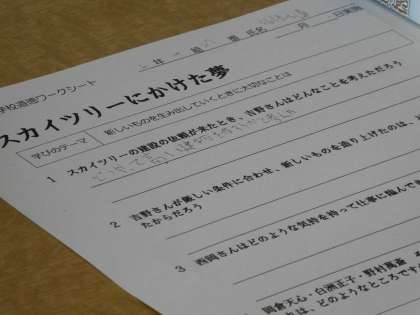 学校道徳ワークシート
年 組 班 氏名 月 日実施
スカイツリーにかけた夢
学びのテーマ 新しいものを生み出していくときに大切なことは
1 スカイツリーの建設の依頼が来たとき、吉野さんはどんなことを考えただろう
2 吉野さんが厳しい条件に合わせ、新しいものを造り上げたのは、
たからだろう
3 西岡さんはどのような気持を持って仕事に臨んで
岡倉天心・白洲正子・野村萬斎
は、どのようなところです